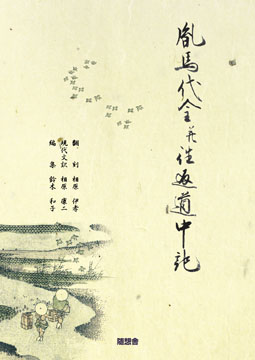 胤馬代金并往返道中記
翻刻 相原伊孝
現代文訳 相原康二
編集 鈴木和子
随想舎